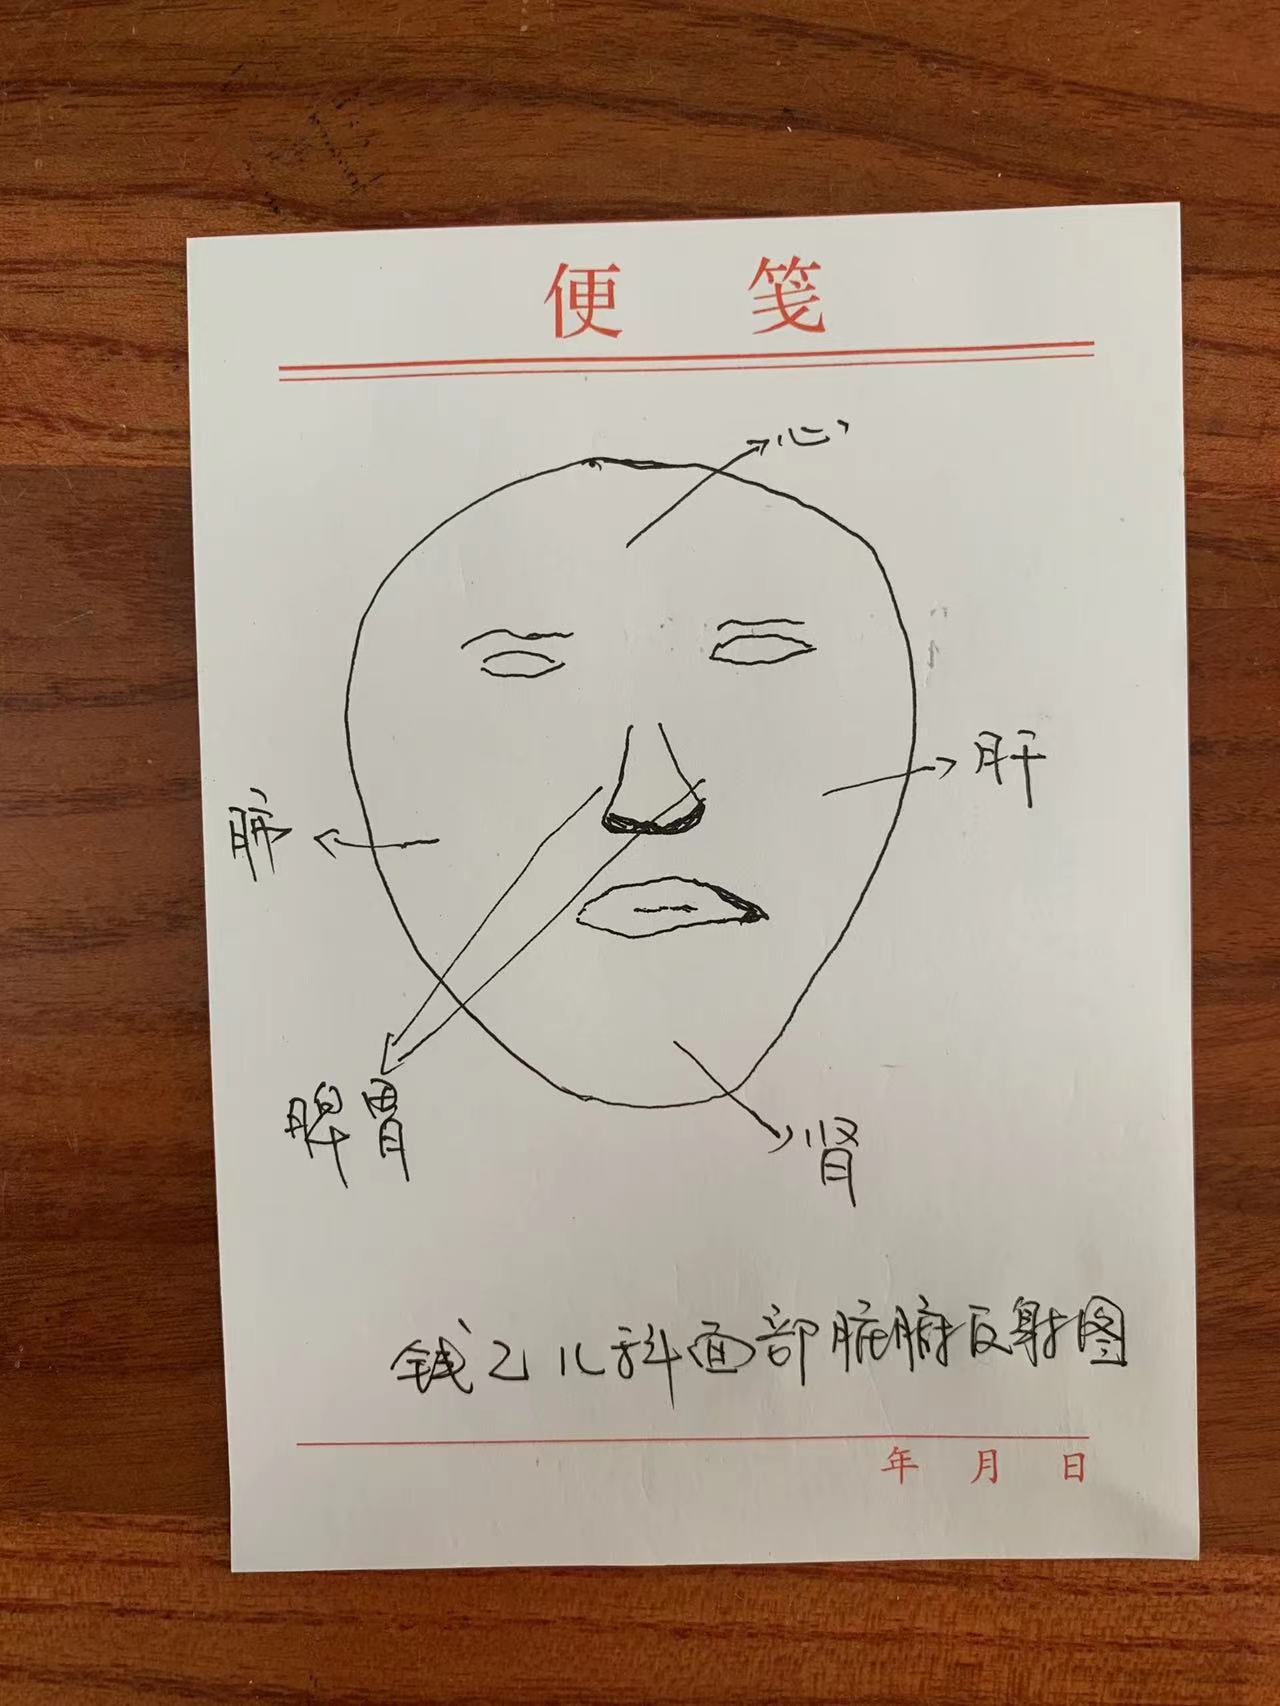 便 笺
心
肝
肺
脾胃
肾
钱乙儿科面部脏腑反射图
年 月 日